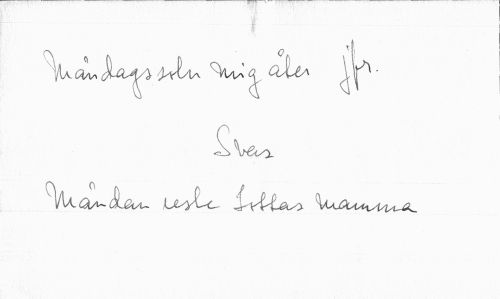 Måndagssoln mig åter jfr.
Svens
Måndan reste Lottas mamma